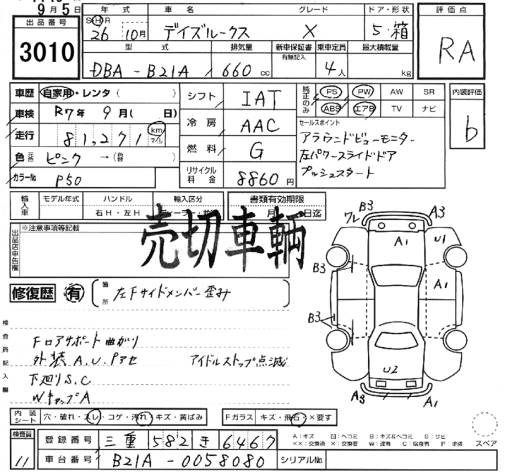 9月5日
出品番号
3010
年式 車名 グレード ドア・形状
SHR 26 10月 デイズルークス X 5・箱
型式 排気量 新車保証書 乗車定員 最大積載量
有無記入
DBA-B21A 660cc 4人 kg
評価点
RA
車歴 自家用・レンタ( )
車検 R7年9月( )
走行 81,271 km マイル
色 ピンク→( )
カラーNo P50
シフト IAT
冷房 AAC
燃料 G
リサイクル料金 8860円
純正のみ PS PW AW SR
ABS エアB TV ナビ
セールスポイント
アラウンドビューモニター
左パワースライドドア
プッシュスタート
内装評価
b
輸入車 モデル年式 ハンドル 輸入区分
右H・左H ディーラー・並
書類有効期限
月 日迄
売切車輌
出品店申告欄
※注意事項等記載
修復歴 有 箇所 左Fサイドメンバー歪み
検査員記入欄
Fロアサポート曲がり
外装A.U.Pアセ アイドルストップ点滅
下廻りS.C
WキャップA
A3
ワレ
A1
U1
A3
B3
A1
B3
A1
U2
A3
A3
スペア
内装シート 穴・破れ・スレ・コゲ・汚れ・キズ・黄ばみ
Fガラス キズ・飛石・×要す
検査員
11
登録番号 三重 582 き 6467
車台番号 B21A-0058080 シリアルNo.